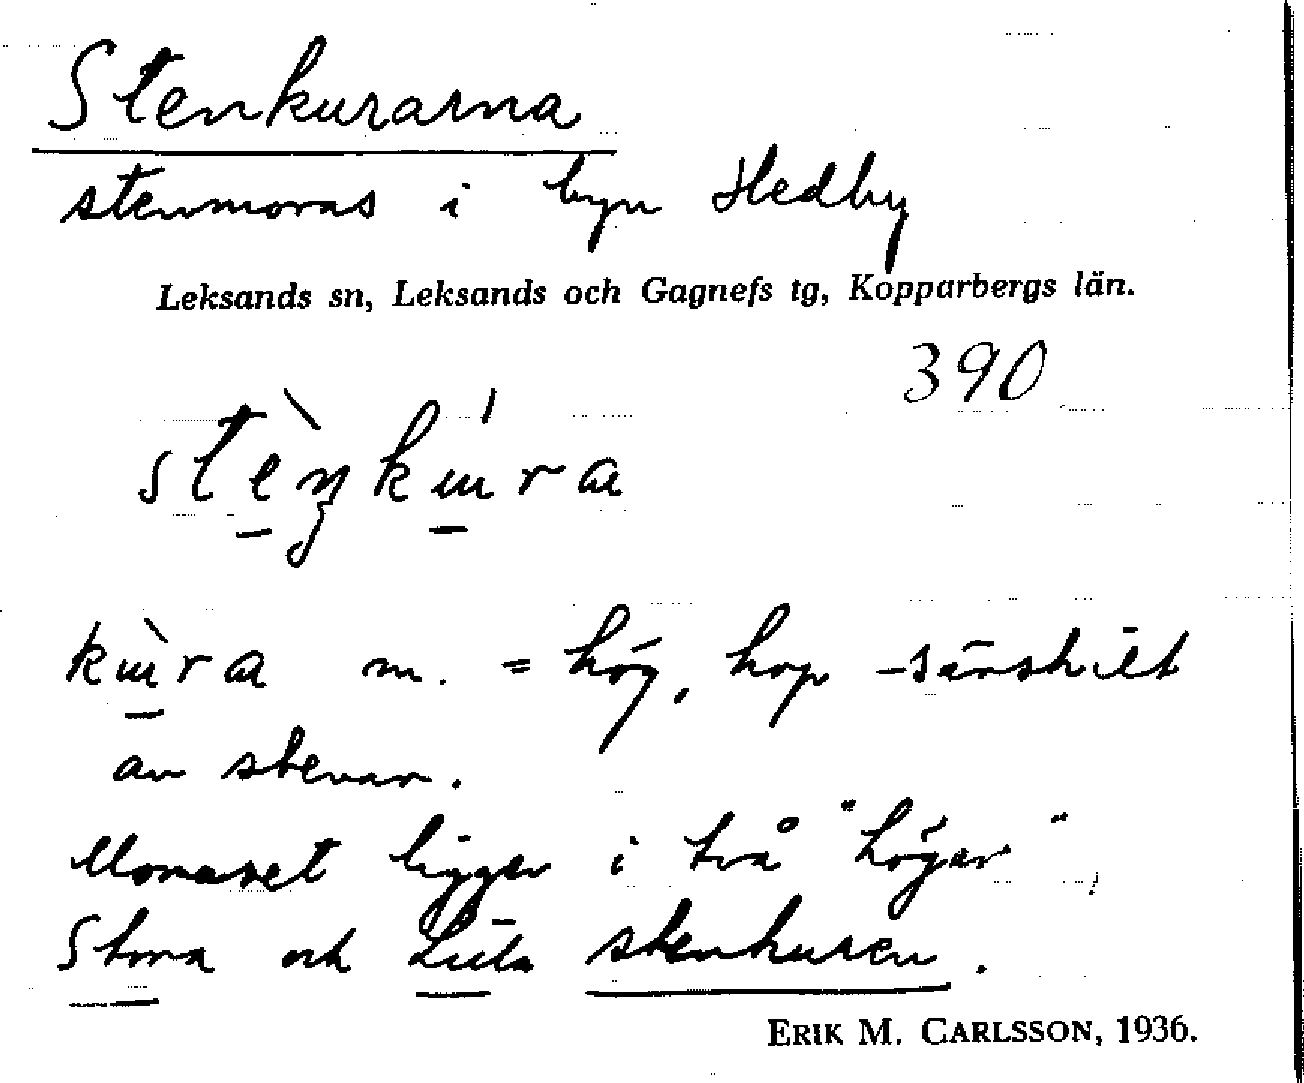 Stenkurarna
stenmoras i byn Hedby
Leksands sn, Leksands och Gagnefs tg, Kopparbergs län.
390
stèŋkúra
kùra m. = hög, hop - särskilt
av stenar.
Moraset ligger i två "högar"
Stora och Lilla stenkuren.
ERIK M. CARLSSON, 1936.